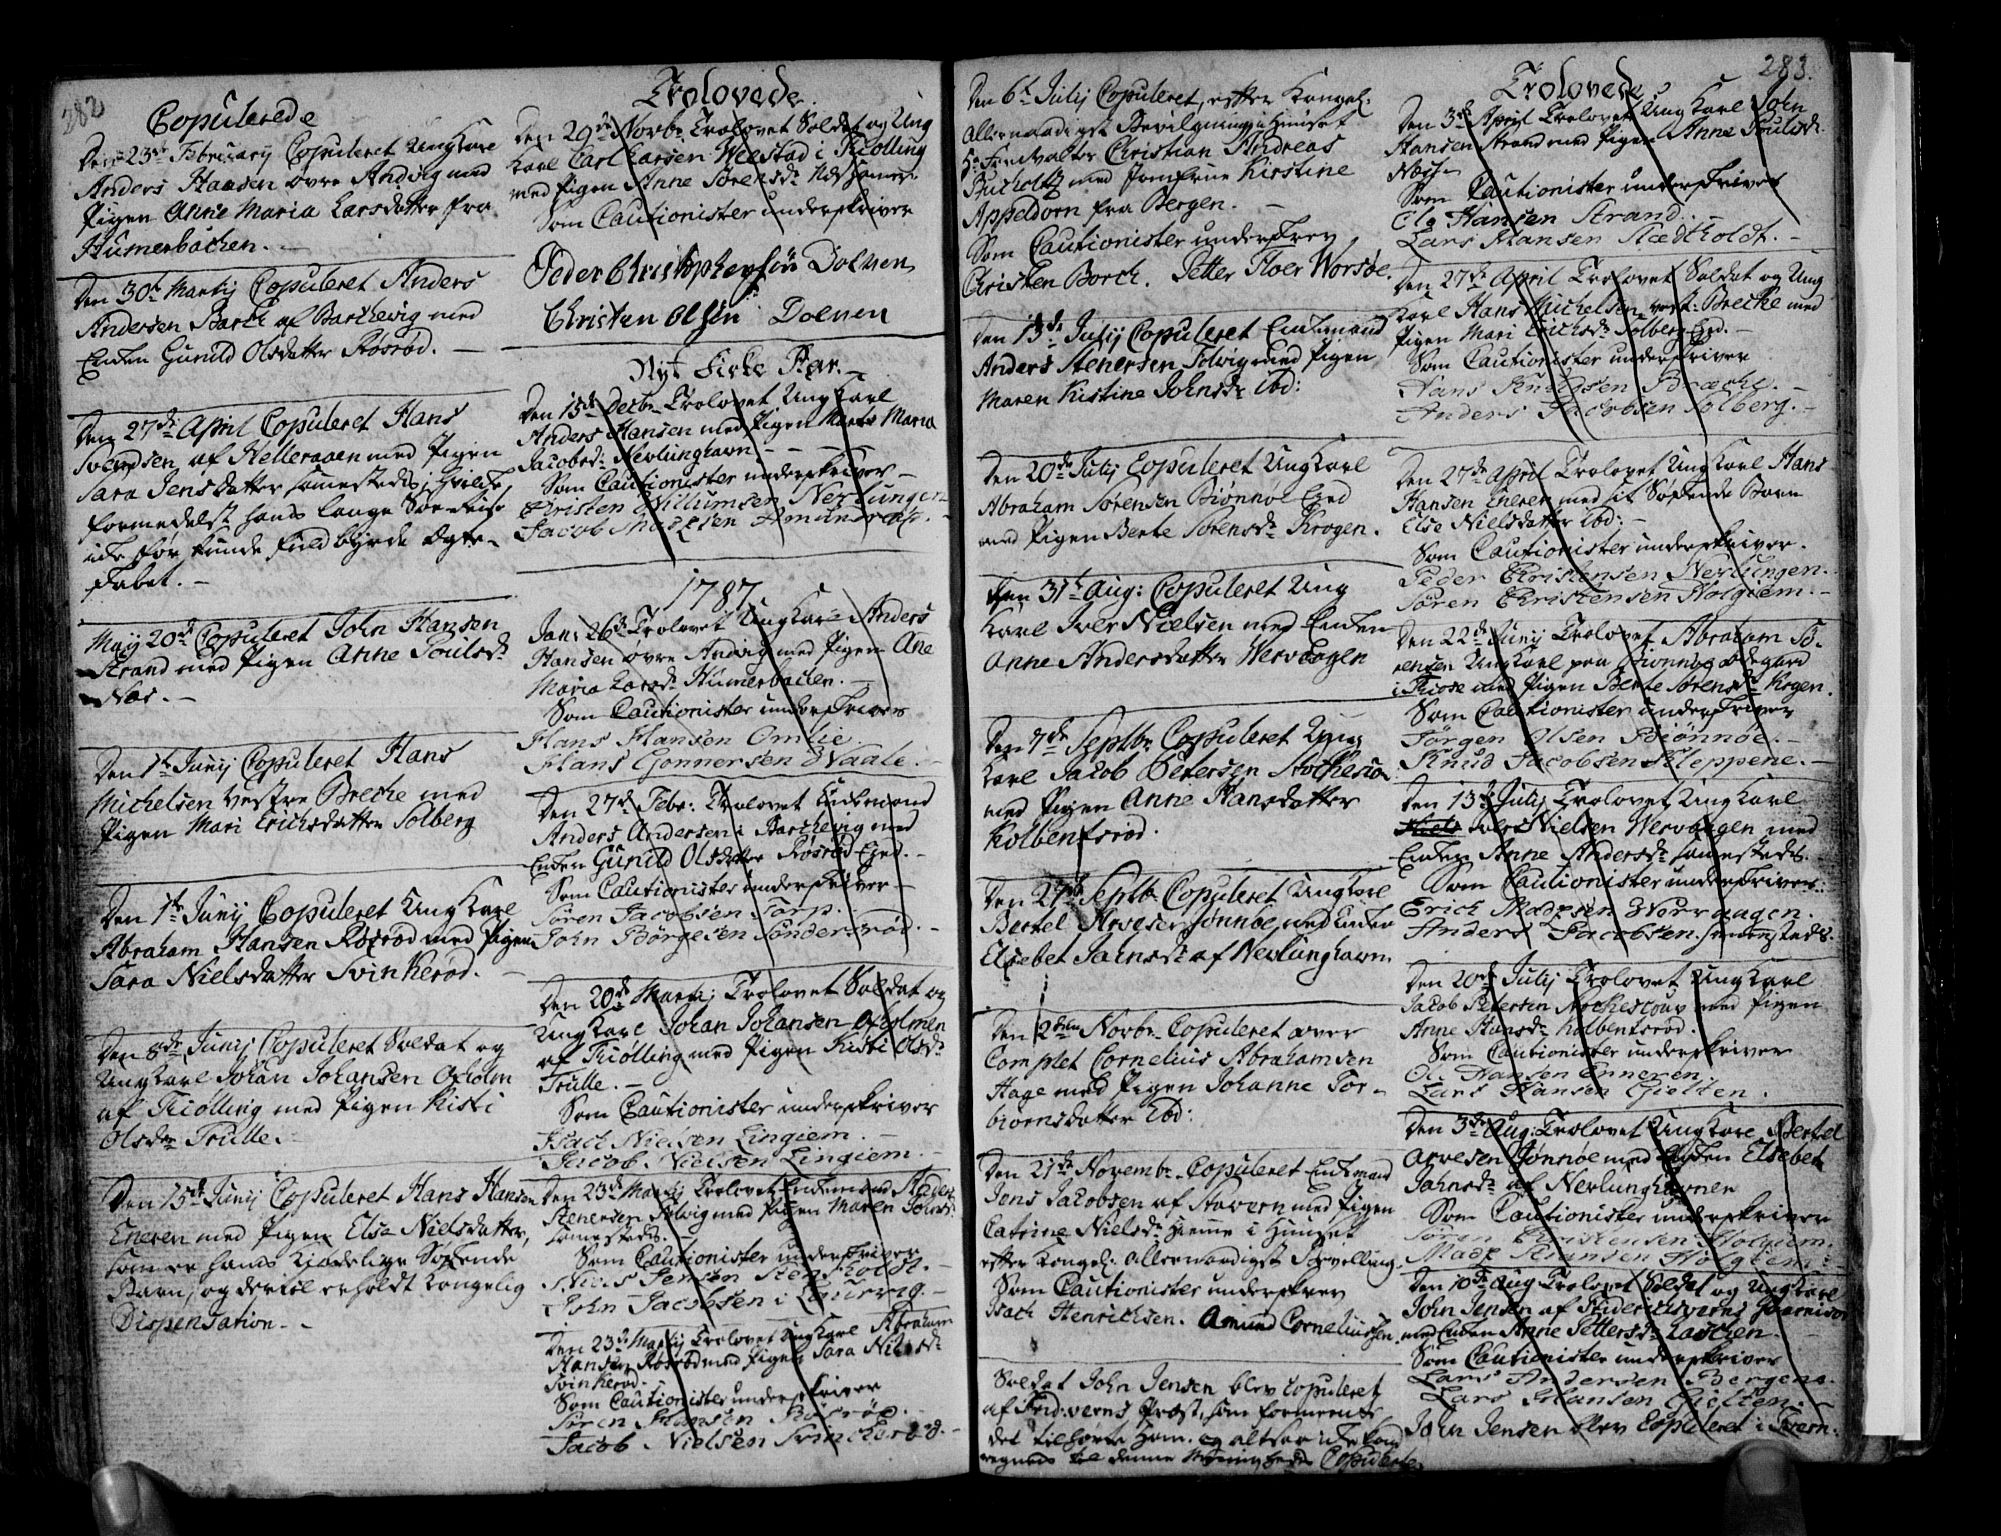 282
Copulerede
Den 23de Februarij Copuleret Ungkarl
Anders Hansen ovre Andvig med
Pigen Anne Maria Larsdatter fra
Humerbachen. -
Den 30te Martij Copuleret Anders
Andersen Barch af Barchevig med
Enken Gunild Olsdatter Rosrød. -
Den 27de April Copuleret Hans
Svendsen af Helleraaen med Pigen
Sara Jensdatter sammesteds, hvilke
formedelst hans lange Søe-Reise
icke før kunde fuldbyrde Egte-
skabet. -
Maij 20de Copuleret John Hansen
Strand med Pigen Anne Poulsdr
Næs. -
Den 1te Junij Copuleret Hans
Michelsen Vestre Breche med
Pigen Mari Erichsdatter Solberg
Den 1te Junij Copuleret Ungkarl
Abraham Hansen Rosrød med Pigen
Sara Nielsdatter Svinkerød. -
Den 8de Junij Copuleret Soldat og
Ungkarl Johan Johansen Oxholm
af Tiølling med Pigen Kisti
Olsdr Trulle. -
Den 15de Junij Copuleret Hans Hansen
Eneren med Pigen Else Nielsdatter,
som er hans kiødelige Søskende
Barn, og dertil erholdt Kongelig
Dispensation. -
Trolovede.
Den 29de Novbr Trolovet Soldat og Ung
Karl Carl Larsen Weestad i Tiølling
med Pigen Anne Sørensdr
Som Cautionister underskriver
Peder Christophersøn Dolven
Christen Olsøn Dolven
Nyt Kirke Aar. -
Den 13de Decbr Trolovet Ungkarl
Anders Hansen med Pigen Maria
Jacobsdr Nevlunghavn. -
Som Cautionister underskriver -
Christen Willumsen Nevlungen
Jacob Madsen
1787.
Jan: 26de Trolovet Ungkarl Anders
Hansen ovre Andvig med Pigen Ane
Maria Larsdr Humerbachen. -
Som Cautionister underskriver
Hans Hansen Omlie.
Hans Gonnersen Hvaale. -
Den 27de Febr: Trolovet Enkemand
Anders Andersen i Barchevig med
Enken Gunild Olsdatter Rosrød Eged. -
Som Cautionister underskriver -
Søren Jacobsen Torp. -
John Børgesen Søndersrød. -
Den 20de Martij Trolovet Soldat og
Ungkarl Johan Johansen Oxholmen
af Tiølling med Pigen Kisti Olsdr
Trulle. -
Som Cautionister underskriver
Isach Nielsen Lingiem. -
Jacob Nielsen Lingiem. -
Den 23de Martij Trolovet Enkemand Anders
Stenersen Solvig med Pigen Maren Johnsdr
sammesteds.
Som Cautionister underskriver
Niels Jensen Stensholdt. -
John Jacobsen i Laurvig. -
Den 23de Martij Trolovet Ungkarl Abraham
Hansen Rosrød med Pigen Sara Nielsdr
Svinkerød. -
Som Cautionister underskriver
Søren Hansen Rosrød. -
Jacob Nielsen Svinckerød. -
Den 6te Julij Copuleret, efter Kongel:
allernaadigst Bevilgning i Huuset
Hr Forvalter Christian Andreas
Bucholtz med Jomfrue Kirstine
Appeldorn fra Bergen. -
Som Cautionister underskrev
Christen Borch. Petter Floer Worsøe.
Den 13de Julij Copuleret Enkemand
Anders Stenersen Solvig med Pigen
Maren Kistine Johnsdr Ibd:
Den 20de Julij Copuleret Ungkarl
Abraham Sørensen Biønnøe Eged
med Pigen Berte Sørensdr Krogen.
Den 31te Aug: Copuleret Ung
Karl Iver Nielsen med Enken
Anne Andersdatter Wervogen
Den 7de Septbr Copuleret Ung
Karl Jacob Petersen
med Pigen Anne Hansdatter
Kolbensrød.
Den 27de Septbr Copuleret Ungkarl
Bertel Arvesen Jonnøe, med Enken
Elsebet Jahnsdr af Nevlunghavn.
Den 2den Novbr Copuleret over
Complet Cornelius Abrahamsen
Hage med Pigen Johanne Tor-
biornsdatter Ibd:
Den 21de Novembr Copuleret Enkemand
Jens Jacobsen af Stavern med Pigen
Catrine Nielsdr hieme i Huuset
efter Kongel: allernaadigst Bevilling.
Som Cautionister underskrev
Isach Henrichsen. Amund Corneliussen.
Soldat John Jensen blev Copuleret
af Fridr:verns Præst, som formeente
det tilhørte ham, og altsaa icke kom
regnes til denne Copulerte.
283.
Trolovede
Den 3de April Trolovet Ungkarl John
Hansen Strand med Pigen Anne Poulsdr
Næss -
Som Cautionister underskriver
Ole Hansen Strand. -
Lars Hansen Stædtholdt. -
Den 27de April Trolovet Soldat og Ung
Karl Hans Michelsen vest: Breche med
Pigen Mari Erichsdr Solberg Eged. -
Som Cautionister underskriver
Hans Knudsen Bræche. -
Anders Jacobsen Solberg. -
Den 27de April Trolovet Ungkarl Hans
Hansen Eneren med sit Søskende Barn
Else Nielsdatter Ibd: -
Som Cautionister underskriver.
Peder Christensen Nevlungen. -
Søren Christensen Holgiem. -
Den 22de Junij Trolovet Abraham Sø-
rensen Ungkarl paa Bionnøe Ødegaard
i Kiose med Pigen Berte Sørensdr Krogen.
Som Cautionister underskriver
Jørgen Olsen Biønnøe. -
Knud Jacobsen Kleppene. -
Den 13de Julij Trolovet Ungkarl
Niels Iver Nielsen Wervogen med
Enken Anne Andersdr sammesteds.
Som Cautionister underskriver:
Erich Madsen Worvaagen.
Anders Jacobsen. sammesteds.
Den 20de Julij Trolovet Ungkarl
Jacob Petersen med Pigen
Anne Hansdr Kolbensrød.
Som Cautionister underskriver
Ole Hansen Enneren.
Lars Hansen Gielten.
Den 3de Aug: Trolovet Ungkarl Bertel
Arvesen Jonnøe med Enken Elsebet
Jahnsdr af Nevlunghavnen
Som Cautionister underskriver
Søren Christensen Holgiem.
Madz Holgiem. -
Den 10de Aug: Trolovet Soldat og Ungkarl
John Jensen af Friderichsverns Guarnison
med Enken Anne Pettersdr Laschen. -
Som Cautionister underskriver
Lars Andersen Bergene.
Lars Hansen Gielten.
John Jensen blev Copuleret i Fr:vern.